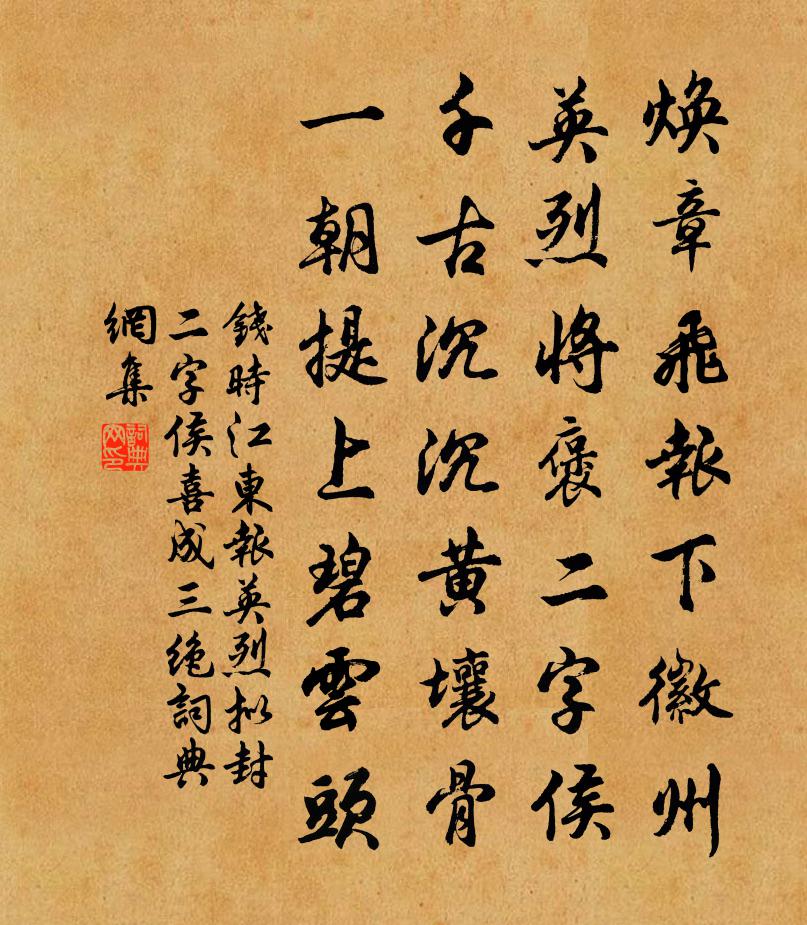 煥章飛報下徽州
英烈將褒二字侯
千古沉沉黃壤骨
一朝提上碧雲頭
錢時江東報英烈擬封
二字侯喜成三絶詞典
網集
詞典
网印